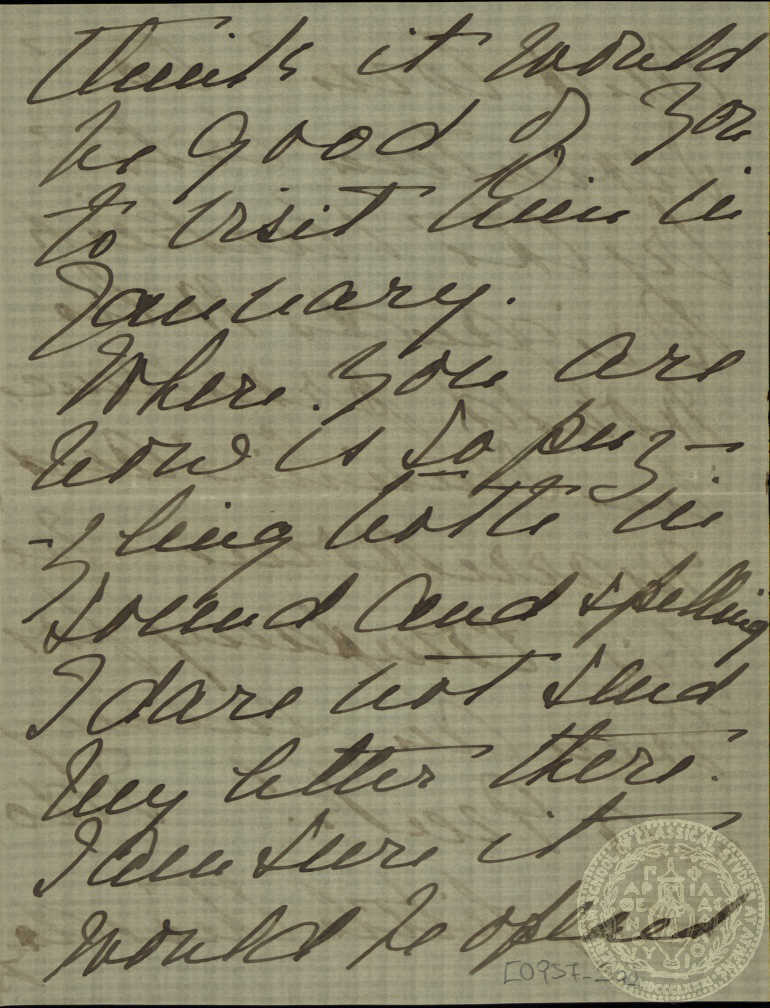 think it would
be good of you
to visit him in
January.
Where you are
now is so puz-
-zling both in
sound and spelling
I dare not send
my letter there.
I am sure it
would be opened